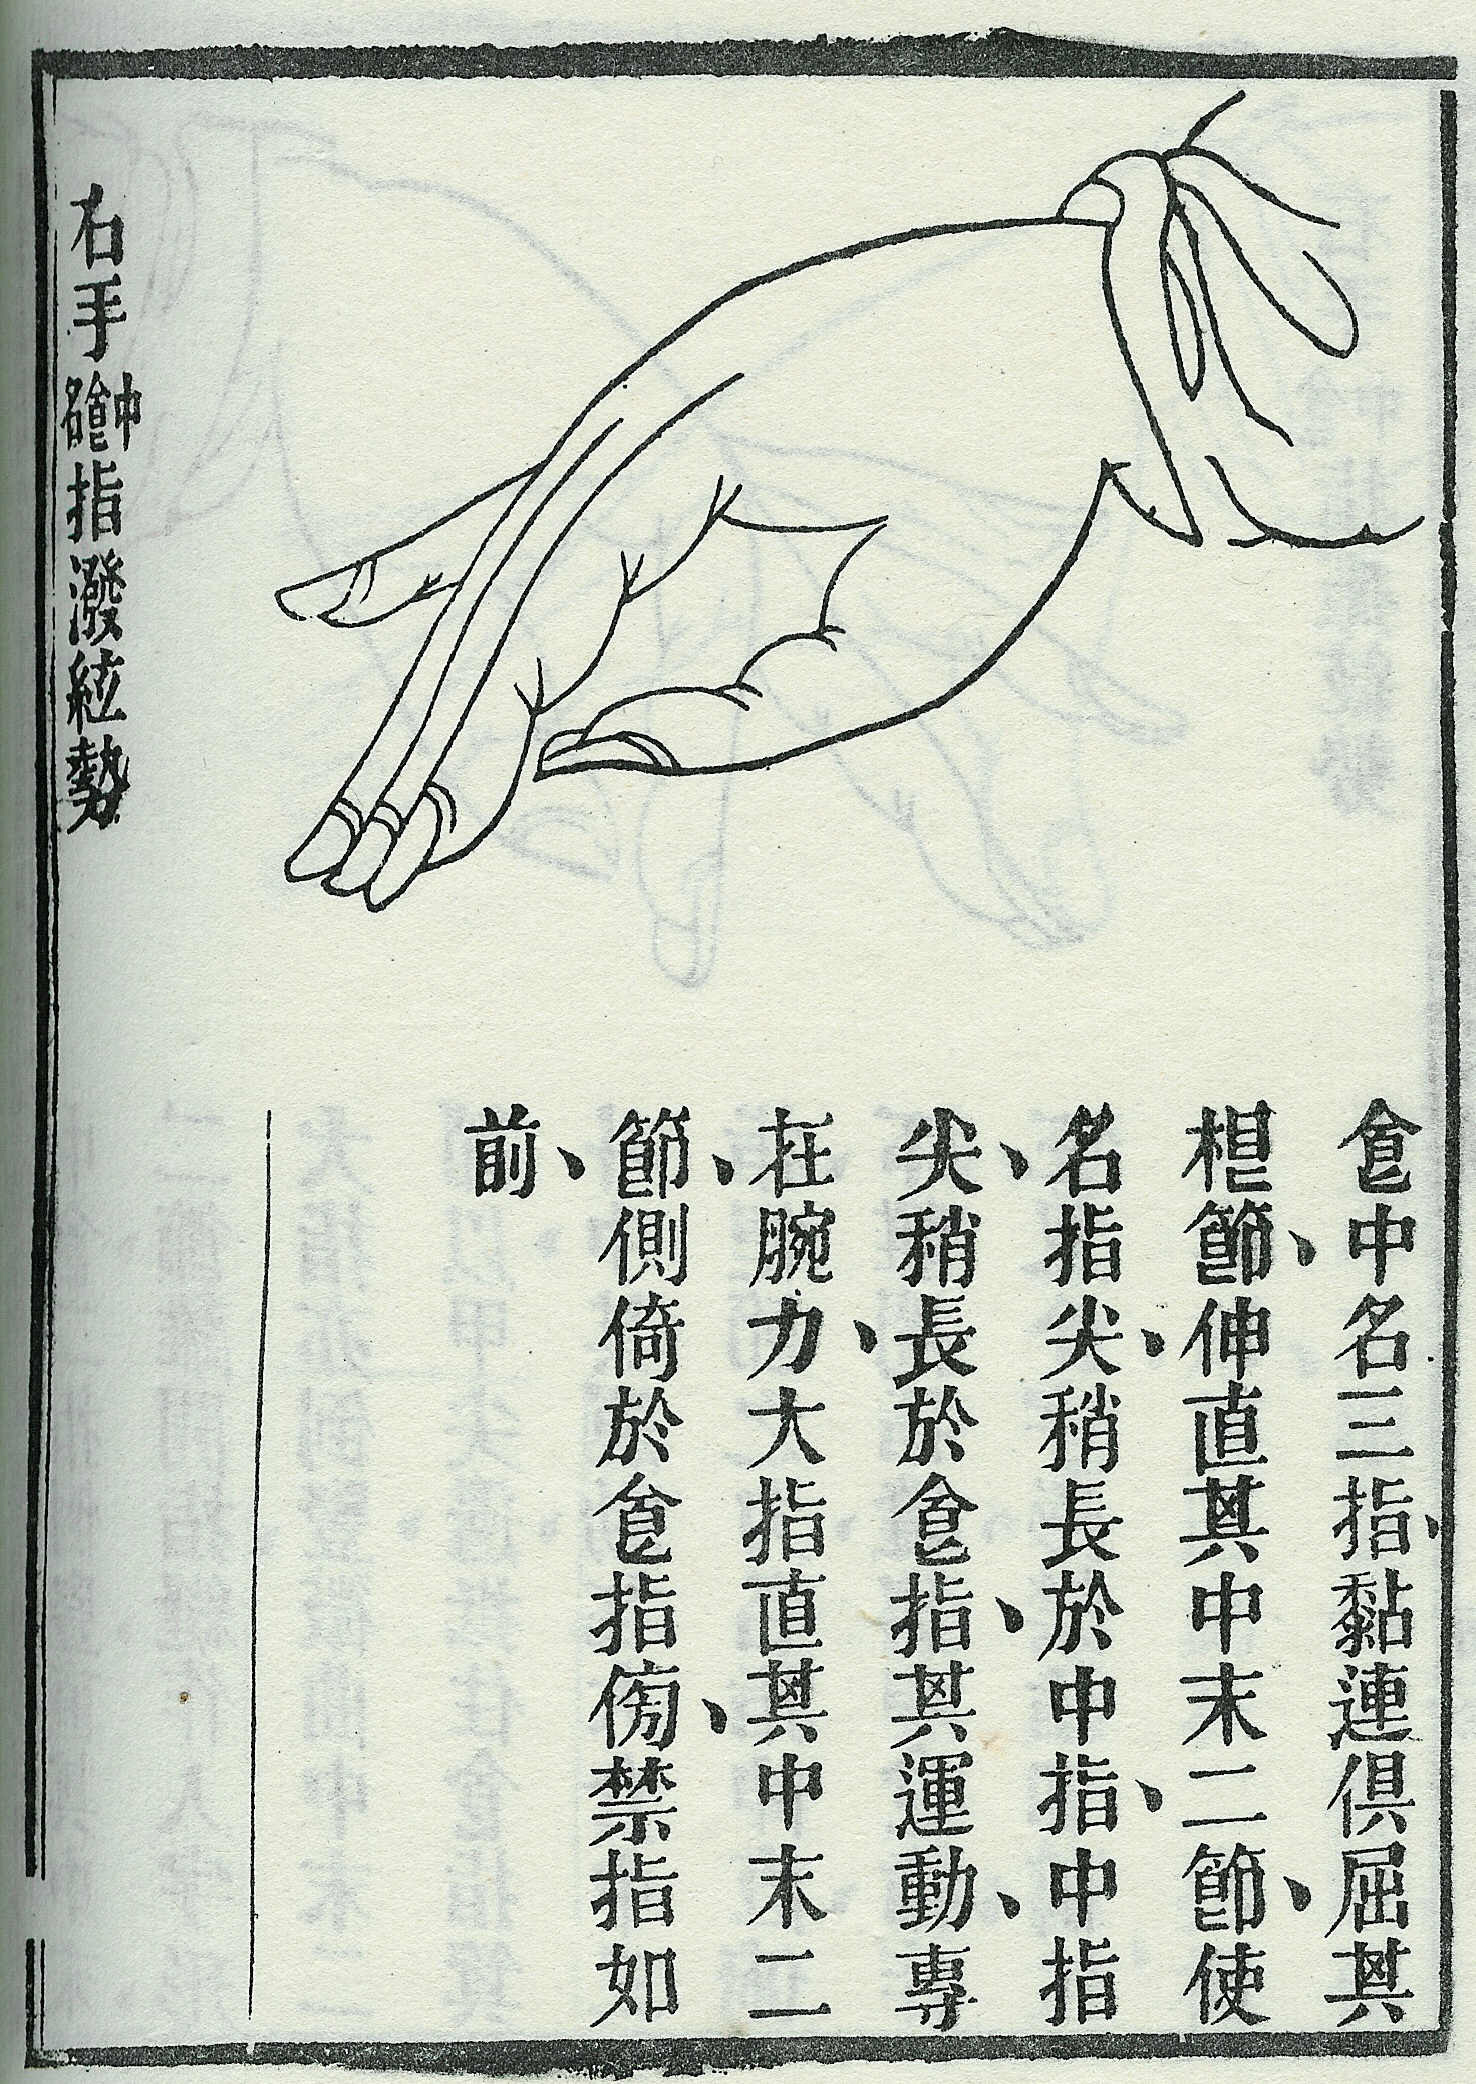 食中名三指、黏連俱屈其
根節、伸直其中末二節、使
名指尖、稍長於中指、中指
尖、稍長於食指、其運動、專
在腕力、大指直其中末二
節、側倚於食指傍、禁指如
前、
右手中食名指潑絃勢